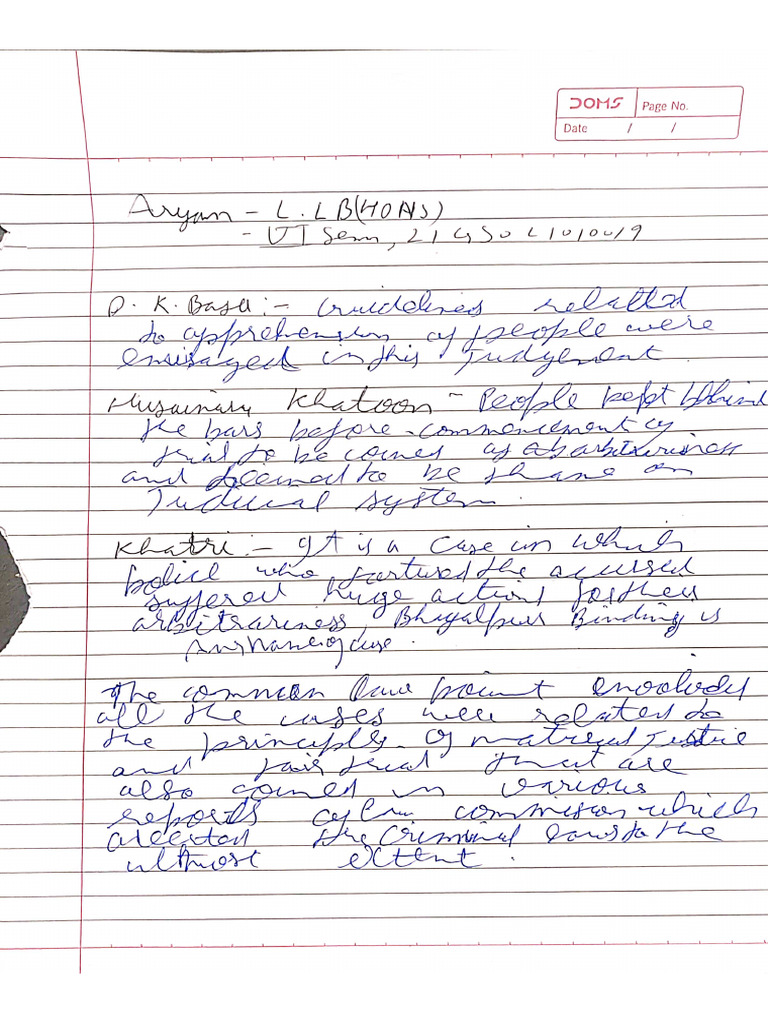 DOMS
Page No.
Date / /
Aryan - L.LB(HONS)
- VI Sem, 21GSOL1010019
D. K. Basu :- Guidelines related
to apprehension of people were
envisaged in this Judgement.
Khatoon - People kept behind
the bars before commencement of
trial to be comes as arbitrariness
and deemed to be shame on
Judicial System.
Khatri :- It is a case in which
police who tortured the accused
suffered huge actions for their
arbitrariness, Bhagalpur Blinding is
name of case.
The common law point
all the cases were related to
the principles of natural Justice
and fair trial that are
also coined in various
reports of law commision which
the Criminal laws to the
utmost extent.